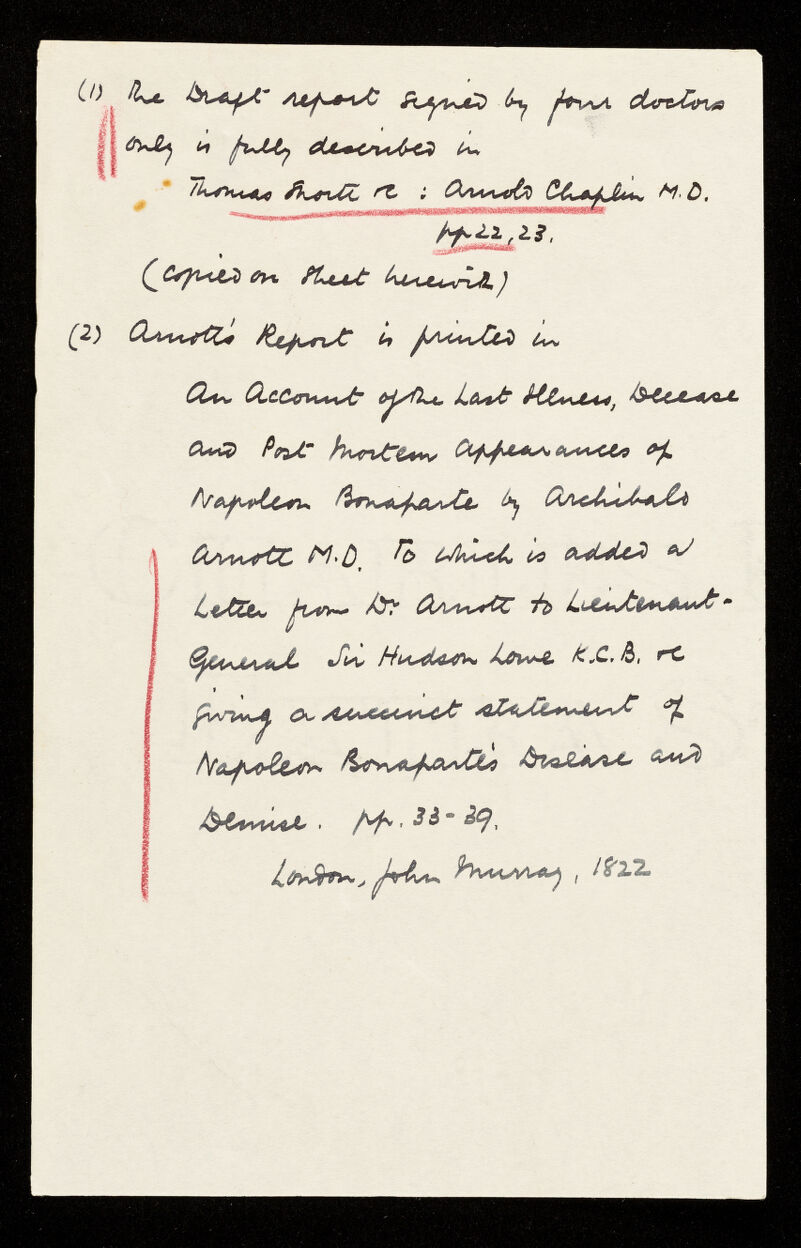 (1) The Draft report signed by four doctors
only is fully described in
Thomas Shortt &c : Arnold Chaplin M.D.
pp 22, 23.
(Copied on sheet herewith)
(2) Arnott's Report is printed in
An Account of the Last Illness, Decease
and Post Mortem Appearances of
Napoleon Bonaparte by Archibald
Arnott M.D. To which is added a
Letter from Dr Arnott to Lieutenant-
General Sir Hudson Lowe K.C.B. &c
giving a succinct statement of
Napoleon Bonaparte's Disease and
Demise. pp. 33-39.
London, John Murray, 1822